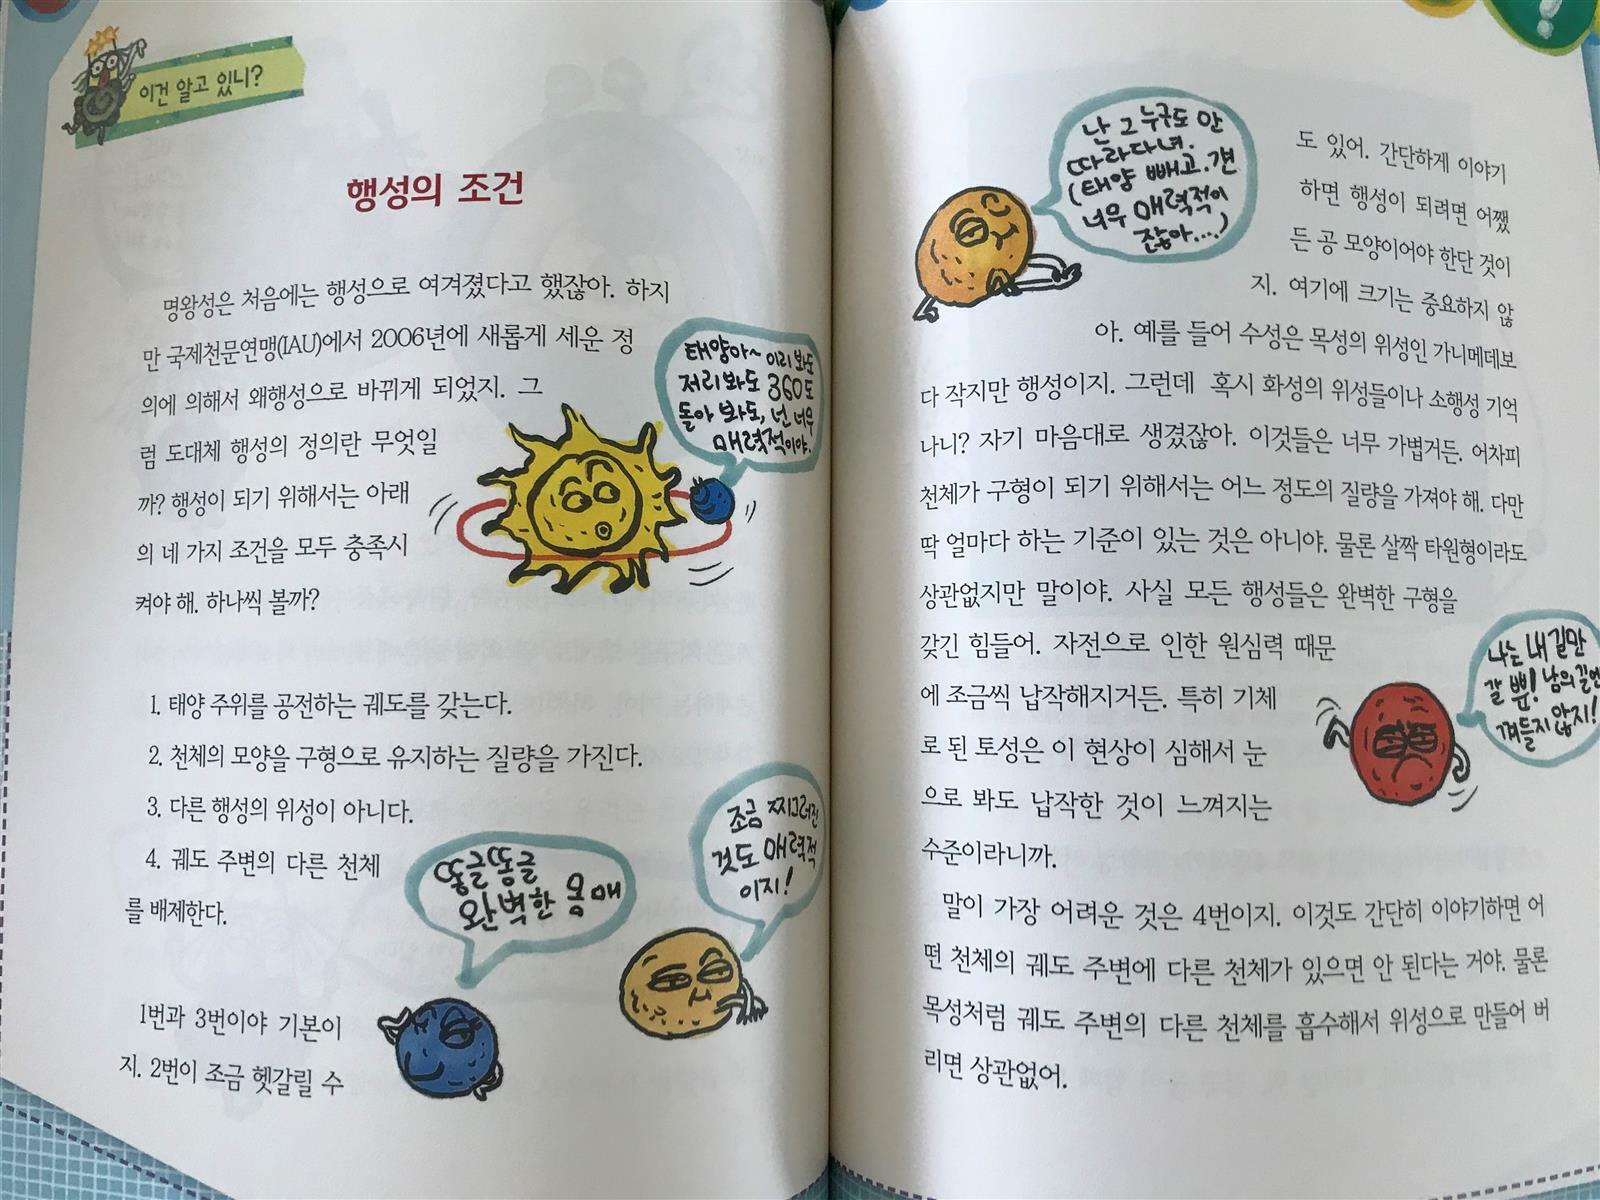 이건 알고 있니?
행성의 조건
명왕성은 처음에는 행성으로 여겨졌다고 했잖아. 하지
만 국제천문연맹(IAU)에서 2006년에 새롭게 세운 정
의에 의해서 왜행성으로 바뀌게 되었지. 그
럼 도대체 행성의 정의란 무엇일
까? 행성이 되기 위해서는 아래
의 네 가지 조건을 모두 충족시
켜야 해. 하나씩 볼까?
태양아~ 이리 봐도
저리봐도 360도
돌아 봐도, 넌 너무
매력적이야.
1. 태양 주위를 공전하는 궤도를 갖는다.
2. 천체의 모양을 구형으로 유지하는 질량을 가진다.
3. 다른 행성의 위성이 아니다.
4. 궤도 주변의 다른 천체
를 배제한다.
똥글똥글
완벽한 몸매
조금 찌그러진
것도 매력적
이지!
1번과 3번이야 기본이
지. 2번이 조금 헷갈릴 수
난 그 누구도 안
따라다녀.
(태양 빼고. 걘
너무 매력적이
잖아...)
도 있어. 간단하게 이야기
하면 행성이 되려면 어쨌
든 공 모양이어야 한단 것이
지. 여기에 크기는 중요하지 않
아. 예를 들어 수성은 목성의 위성인 가니메데보
다 작지만 행성이지. 그런데 혹시 화성의 위성들이나 소행성 기억
나니? 자기 마음대로 생겼잖아. 이것들은 너무 가볍거든. 어차피
천체가 구형이 되기 위해서는 어느 정도의 질량을 가져야 해. 다만
딱 얼마다 하는 기준이 있는 것은 아니야. 물론 살짝 타원형이라도
상관없지만 말이야. 사실 모든 행성들은 완벽한 구형을
갖긴 힘들어. 자전으로 인한 원심력 때문
에 조금씩 납작해지거든. 특히 기체
로 된 토성은 이 현상이 심해서 눈
으로 봐도 납작한 것이 느껴지는
수준이라니까.
나는 내 길만
갈 뿐! 남의 길엔
껴들지 않지!
말이 가장 어려운 것은 4번이지. 이것도 간단히 이야기하면 어
떤 천체의 궤도 주변에 다른 천체가 있으면 안 된다는 거야. 물론
목성처럼 궤도 주변의 다른 천체를 흡수해서 위성으로 만들어 버
리면 상관없어.